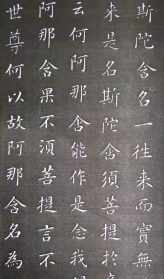 斯陀含名一往來而實無
來是名斯陀含須菩提於
云何阿那含能作是念我
阿那含果不須菩提言不
世尊何以故阿那含名為